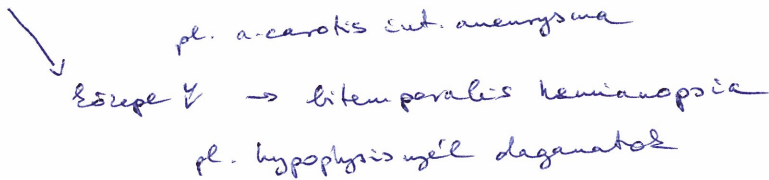 pl. a. carotis int. aneurysma
közepe ↯ → bitemporalis hemianopsia
pl. hypophysisnyél daganatok